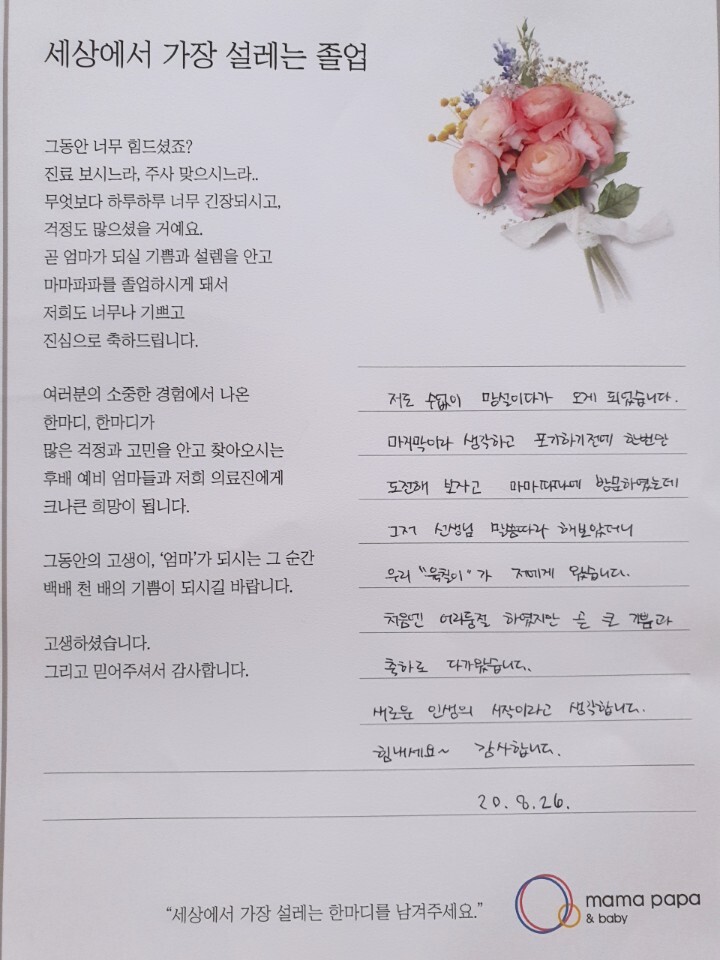 세상에서 가장 설레는 졸업
그동안 너무 힘드셨죠?
진료 보시느라, 주사 맞으시느라..
무엇보다 하루하루 너무 긴장되시고,
걱정도 많으셨을 거예요.
곧 엄마가 되실 기쁨과 설렘을 안고
마마파파를 졸업하시게 돼서
저희도 너무나 기쁘고
진심으로 축하드립니다.
여러분의 소중한 경험에서 나온
한마디, 한마디가
많은 걱정과 고민을 안고 찾아오시는
후배 예비 엄마들과 저희 의료진에게
크나큰 희망이 됩니다.
그동안의 고생이, ‘엄마’가 되시는 그 순간
백배 천 배의 기쁨이 되시길 바랍니다.
고생하셨습니다.
그리고 믿어주셔서 감사합니다.
저도 수없이 망설이다가 오게 되었습니다.
마지막이라 생각하고 포기하기전에 한번만
도전해 보자고 마마파파에 방문하였는데
그저 선생님 말씀따라 해보았더니
우리 "육칠이"가 저에게 왔습니다.
처음엔 어리둥절 하였지만 곧 큰 기쁨과
축하로 다가왔습니다.
새로운 인생의 시작이라고 생각합니다.
힘내세요~ 감사합니다.
20.8.26.
“세상에서 가장 설레는 한마디를 남겨주세요.”
mama papa
& baby